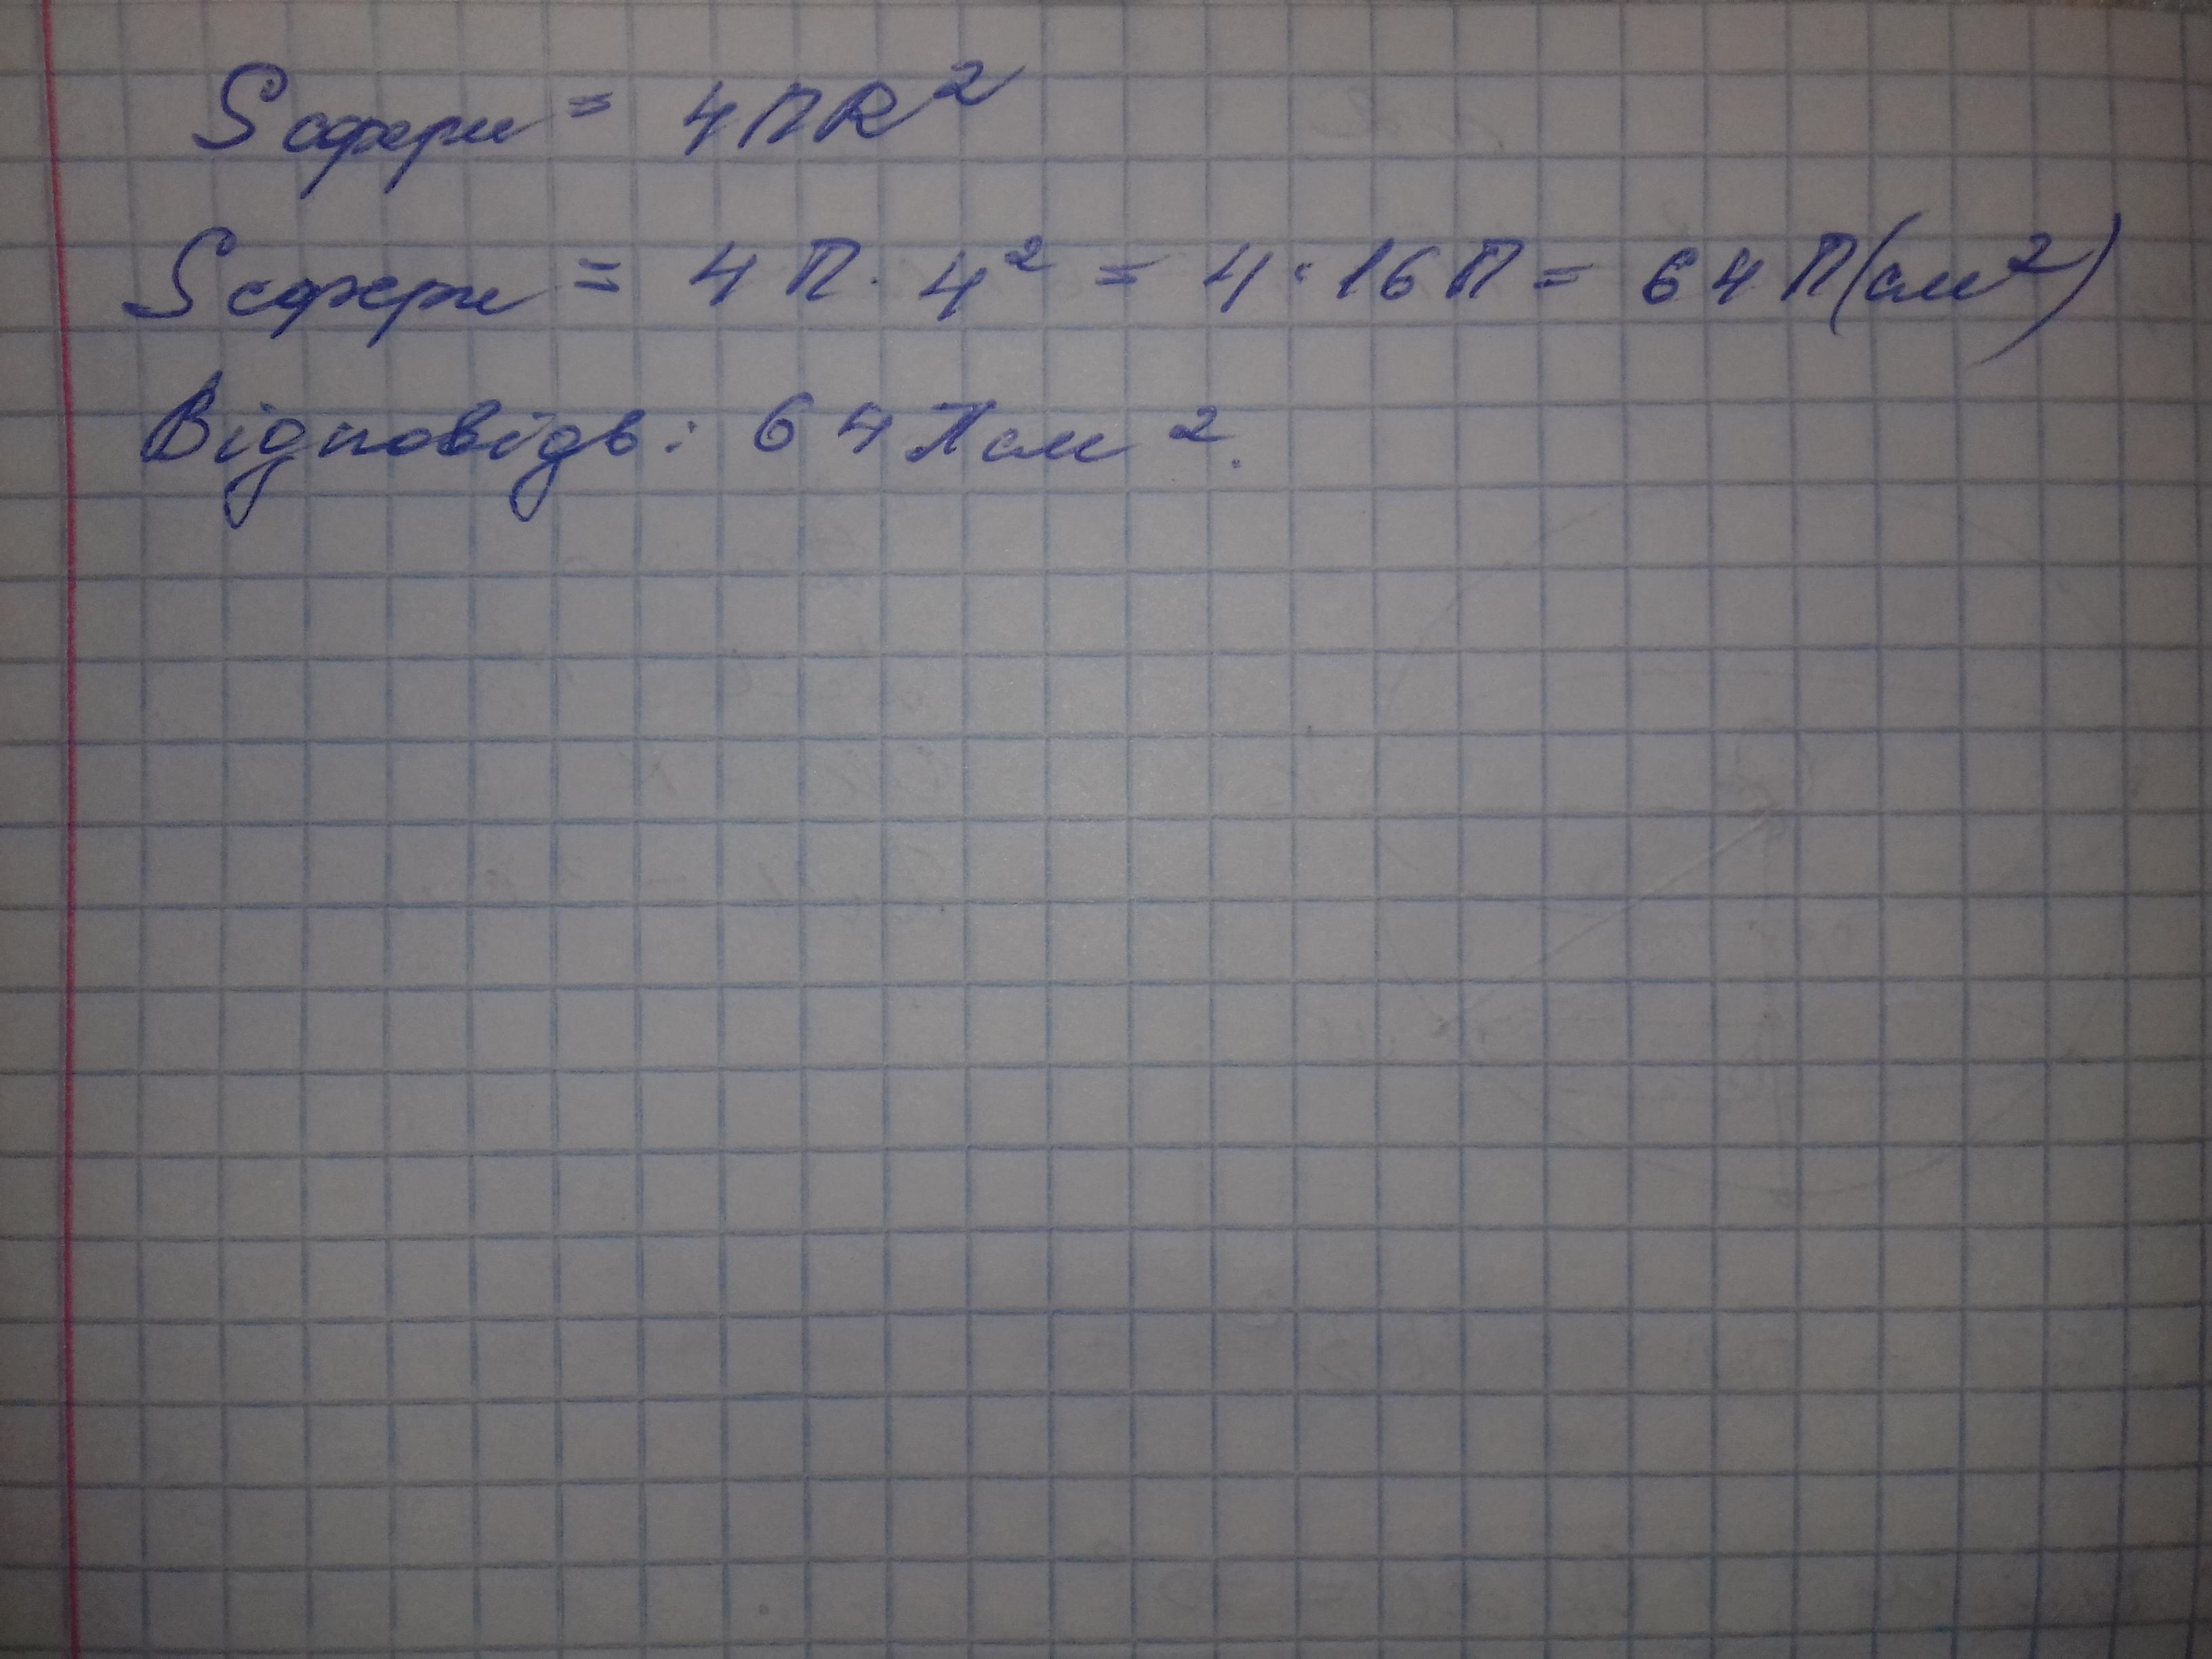 Sсфери = 4ПR²
Sсфери = 4П · 4² = 4 · 16П = 64П(см²)
Відповідь: 64Псм².